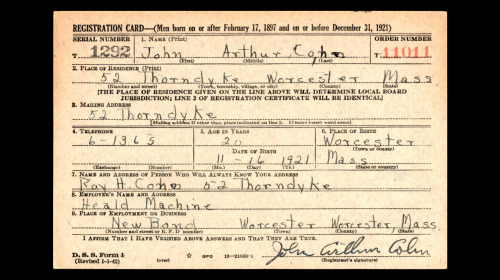 REGISTRATION CARD—(Men born on or after February 17, 1897 and on or before December 31, 1921)
SERIAL NUMBER 1. NAME (Print) ORDER NUMBER
T 1292 John Arthur Cohn T 11011
(First) (Middle) (Last)
2. PLACE OF RESIDENCE (Print)
52 Thorndyke Worcester Mass
(Number and street) (Town, township, village, or city) (County) (State)
[THE PLACE OF RESIDENCE GIVEN ON THE LINE ABOVE WILL DETERMINE LOCAL BOARD
JURISDICTION; LINE 2 OF REGISTRATION CERTIFICATE WILL BE IDENTICAL]
3. MAILING ADDRESS
52 Thorndyke
[Mailing address if other than place indicated on line 2. If same insert word same]
4. TELEPHONE 5. AGE IN YEARS 6. PLACE OF BIRTH
6-1365 20 Worcester
DATE OF BIRTH (Town or county)
11-16 1921 Mass
(Exchange) (Number) (Mo.) (Day) (Yr.) (State or country)
7. NAME AND ADDRESS OF PERSON WHO WILL ALWAYS KNOW YOUR ADDRESS
Roy H. Cohn 52 Thorndyke
8. EMPLOYER'S NAME AND ADDRESS
Heald Machine
9. PLACE OF EMPLOYMENT OR BUSINESS
New Bond Worcester Worcester, Mass.
(Number and street or R. F. D. number) (Town) (County) (State)
I AFFIRM THAT I HAVE VERIFIED ABOVE ANSWERS AND THAT THEY ARE TRUE.
D. S. S. Form 1
(Revised 1-1-42) (over) GPO 16-21630-1 John Arthur Cohn
(Registrant's signature)